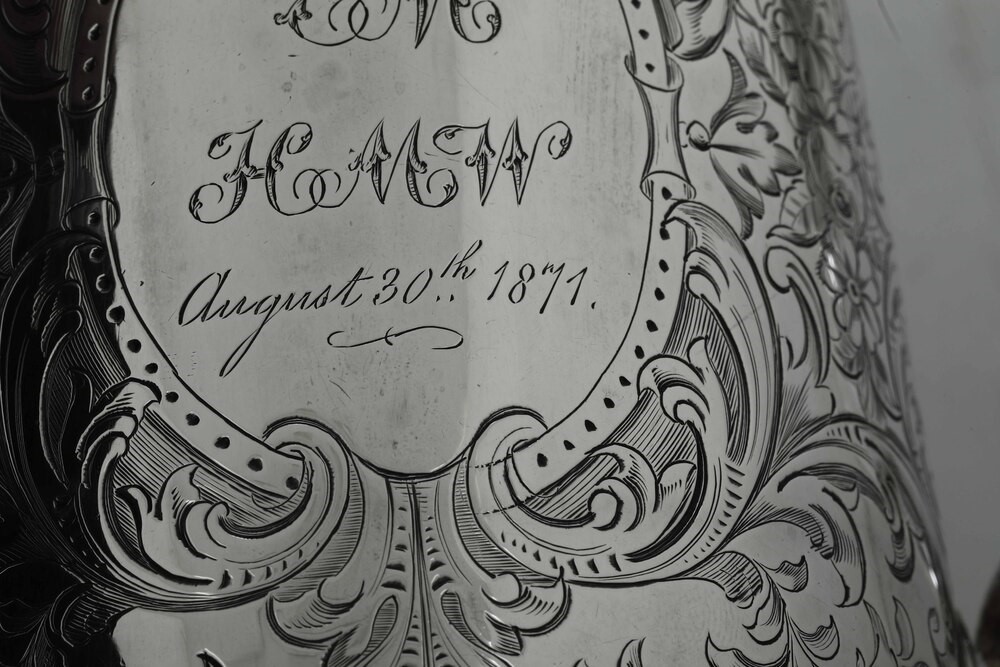 HMW
August 30th 1871.